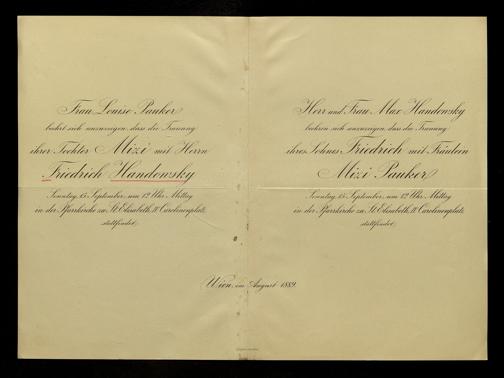 Frau Louise Pauker
beehrt sich anzuzeigen, dass die Trauung
ihrer Tochter Mizi mit Herrn
Friedrich Handowsky
Sonntag, 15. September, um 12 Uhr Mittag
in der Pfarrkirche zu St. Elisabeth, IV. Carolinenplatz,
stattfindet.
Herr und Frau Max Handowsky
beehren sich anzuzeigen, dass die Trauung
ihres Sohnes Friedrich mit Fräulein
Mizi Pauker
Sonntag, 15. September, um 12 Uhr Mittag
in der Pfarrkirche zu St. Elisabeth, IV. Carolinenplatz,
stattfindet.
Wien, im August 1889.